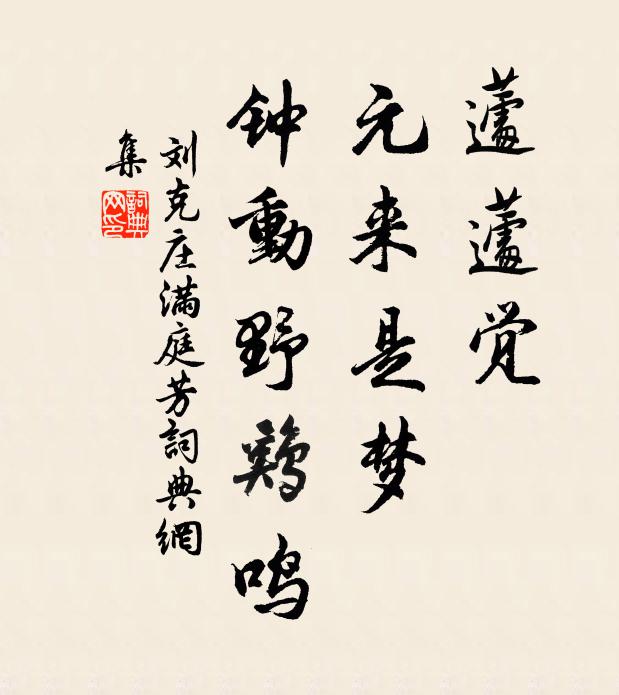 蘧蘧觉
元来是梦
钟動野鶏鸣
刘克庄满庭芳詞典網
集
詞典网印